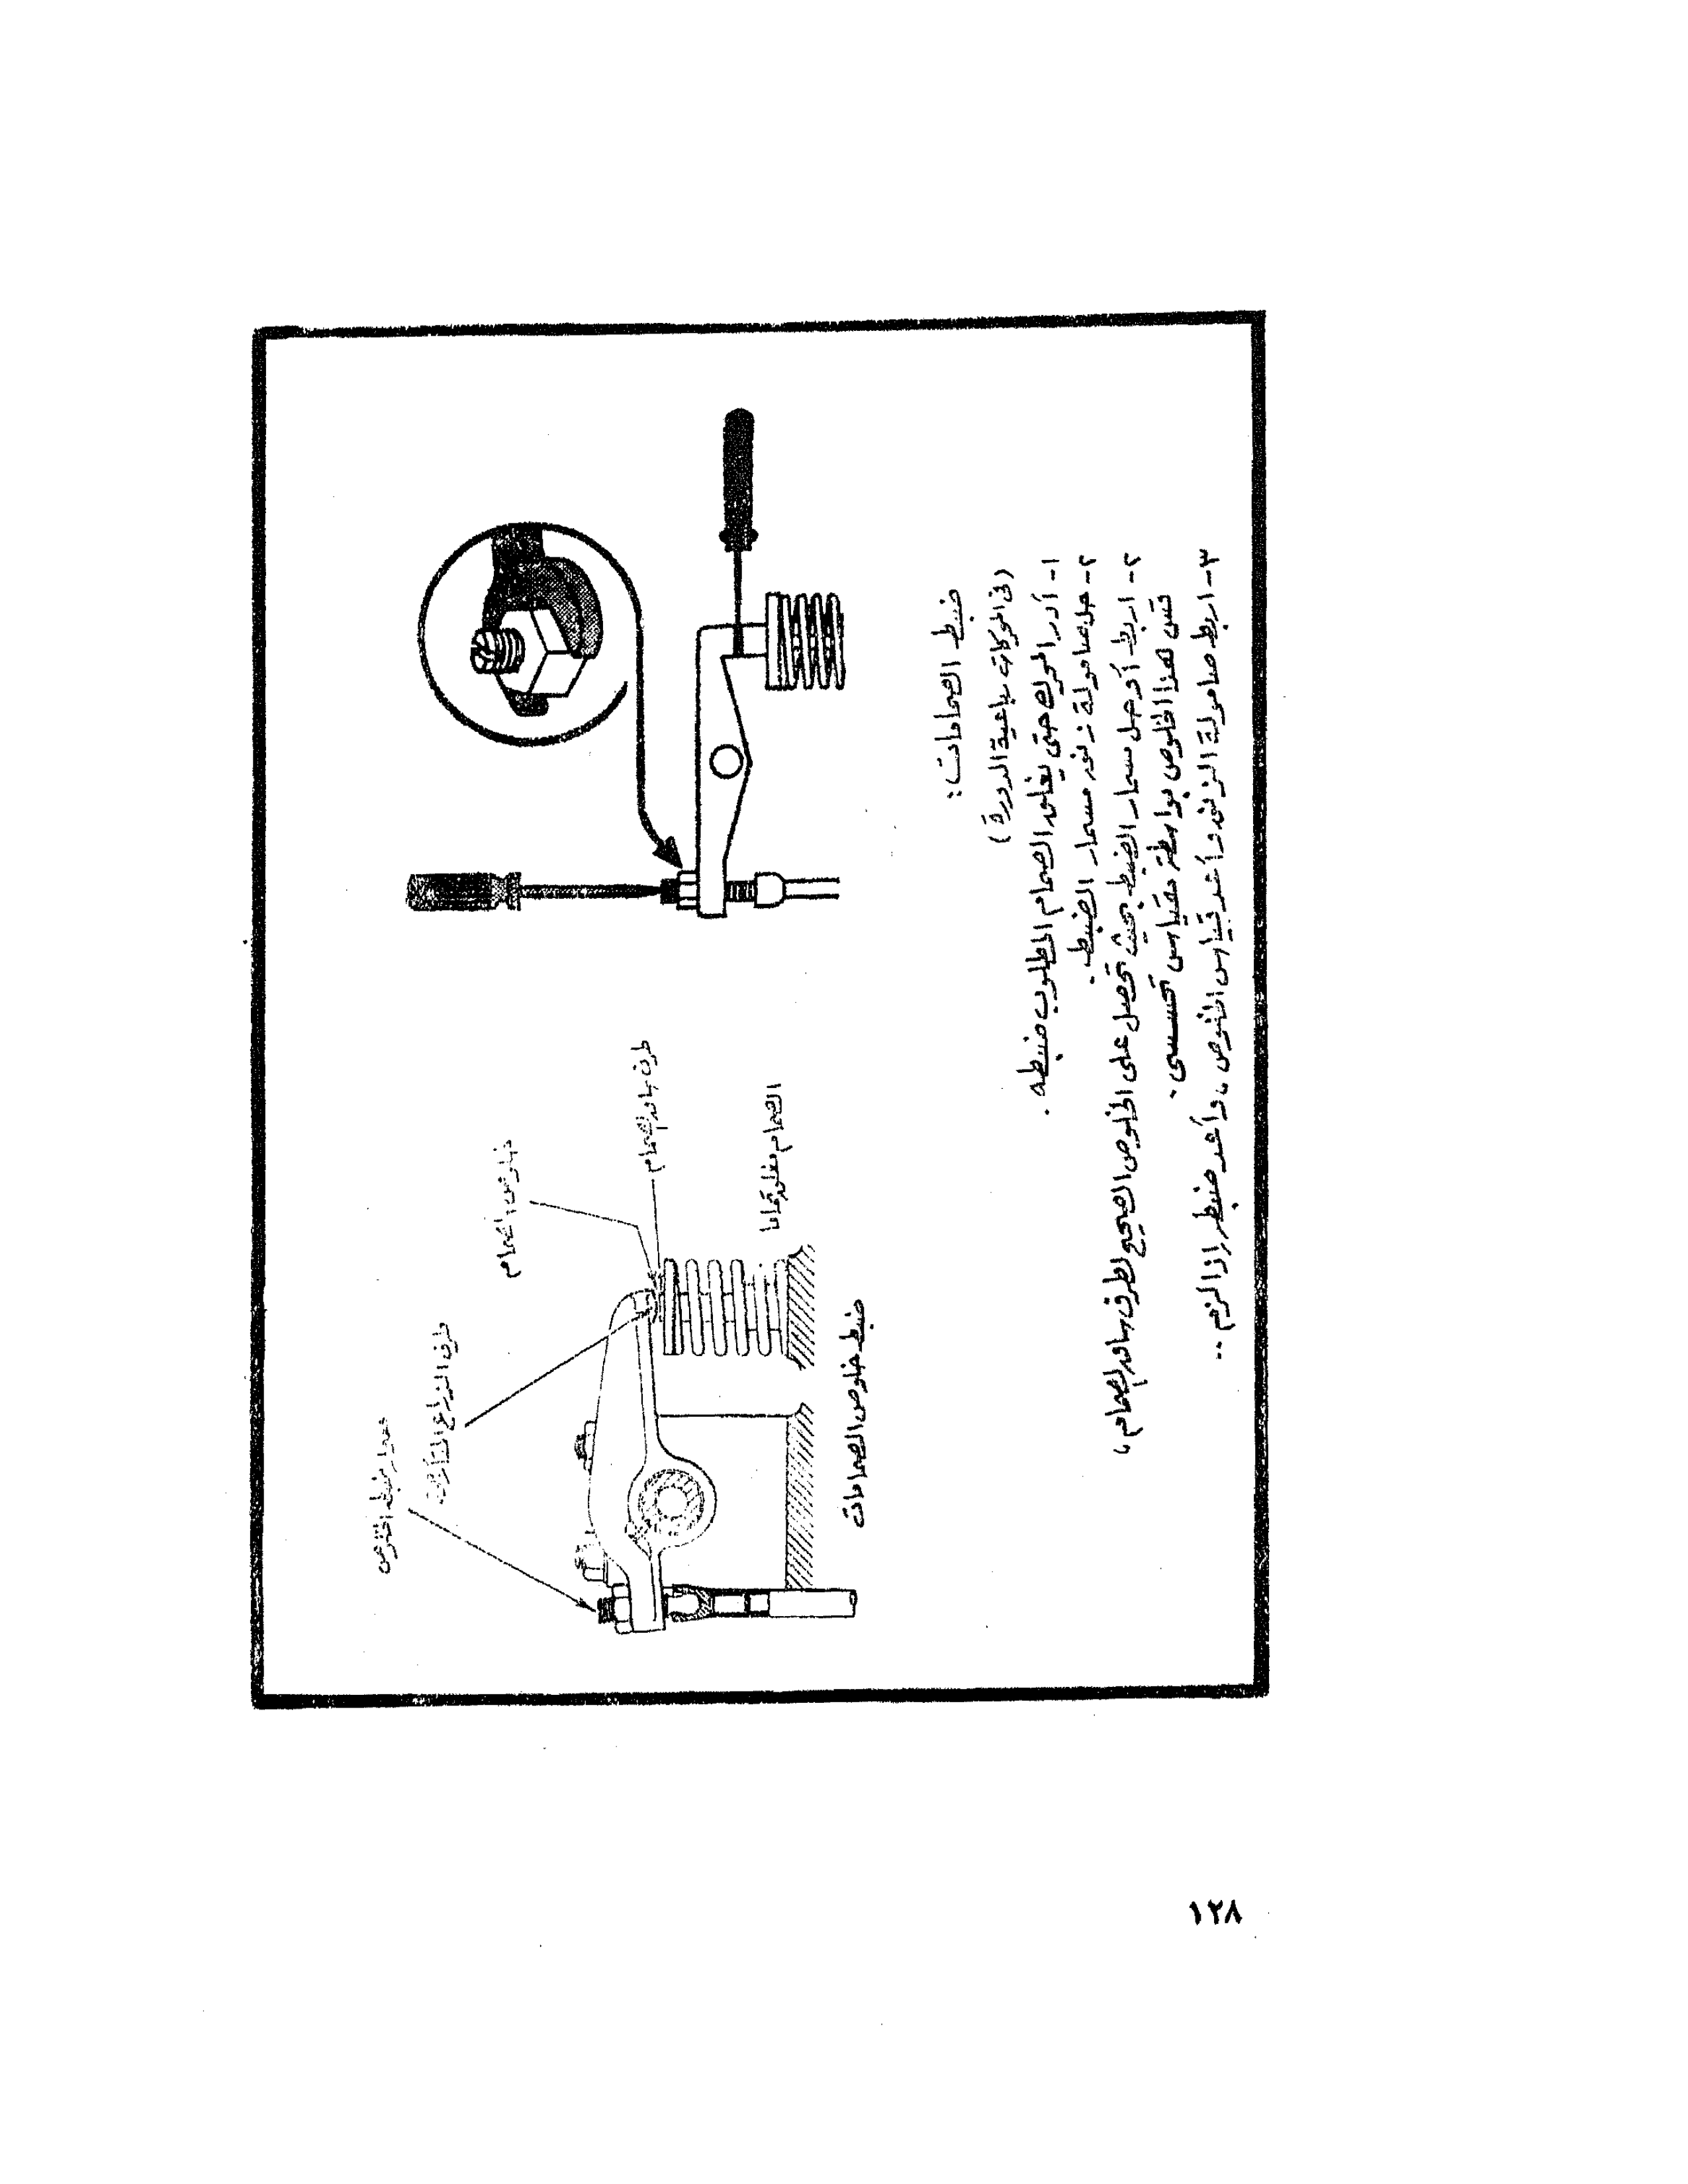 مسمار ضبط الخلوص
طرف الذراع المتأرجحة
خلوص الصمام
طرف ساق الصمام
الصمام مغلق تماما
ضبط خلوص الصمامات
ضبط الصمامات:
(فى المحركات رباعية الدورة)
١- أدر المحرك حتى يغلق الصمام المطلوب ضبطه.
٢- حل صامولة زنق مسمار الضبط.
٢- اربط أو حل مسمار الضبط بحيث تحصل على الخلوص الصحيح لطرف ساق الصمام،
قس هذا الخلوص بواسطة مقياس تحسسى.
٣- اربط صامولة الزنق وأعد قياس الخلوص، وأعد ضبطه إذا لزم..
١٢٨